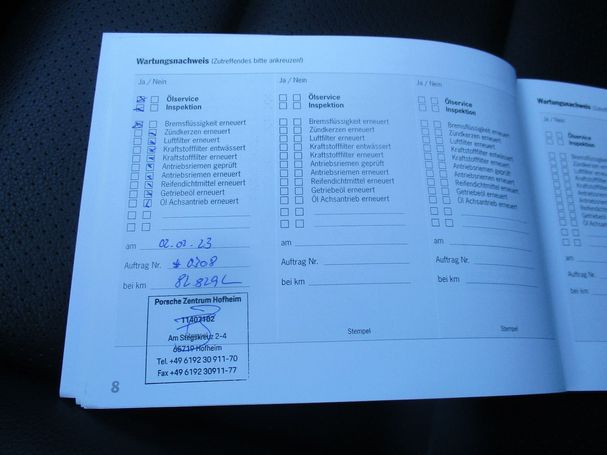 Wartungsnachweis (Zutreffendes bitte ankreuzen!)
Ja / Nein
Ölservice
Inspektion
Bremsflüssigkeit erneuert
Zündkerzen erneuert
Luftfilter erneuert
Kraftstofffilter entwässert
Kraftstofffilter erneuert
Antriebsriemen geprüft
Antriebsriemen erneuert
Reifendichtmittel erneuert
Getriebeöl erneuert
Öl Achsantrieb erneuert
am 02.02.23
Auftrag Nr. 0208
bei km 82 829
Porsche Zentrum Hofheim
11402102
Am Stegskreuz 2-4
65719 Hofheim
Tel. +49 6192 30 911-70
Fax +49 6192 30911-77
8
Ja / Nein
Ölservice
Inspektion
Bremsflüssigkeit erneuert
Zündkerzen erneuert
Luftfilter erneuert
Kraftstofffilter entwässert
Kraftstofffilter erneuert
Antriebsriemen geprüft
Antriebsriemen erneuert
Reifendichtmittel erneuert
Getriebeöl erneuert
Öl Achsantrieb erneuert
am
Auftrag Nr.
bei km
Stempel
Ja / Nein
Ölservice
Inspektion
Bremsflüssigkeit erneuert
Zündkerzen erneuert
Luftfilter erneuert
Kraftstofffilter entwässert
Kraftstofffilter erneuert
Antriebsriemen geprüft
Antriebsriemen erneuert
Reifendichtmittel erneuert
Getriebeöl erneuert
Öl Achsantrieb erneuert
am
Auftrag Nr.
bei km
Stempel
Wartungsnachweis
Ja / Nein
Ölservice
Inspektion
am
Auftrag Nr.
bei km